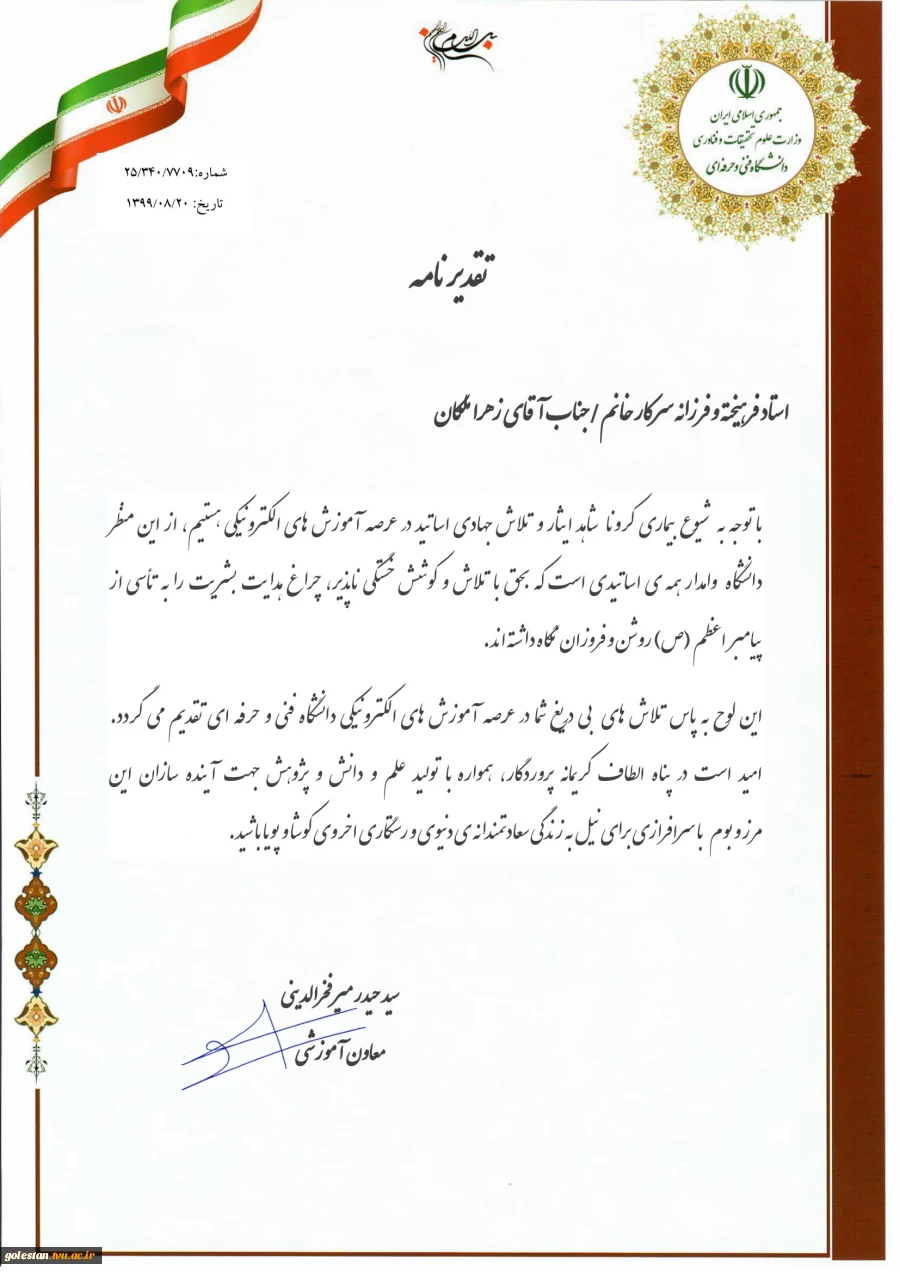 بسم الله الرحمن الرحیم
جمهوری اسلامی ایران
وزارت علوم تحقیقات و فناوری
دانشگاه فنی و حرفه ای
شماره: ۲۵/۳۴۰/۷۷۰۹
تاریخ: ۱۳۹۹/۰۸/۲۰
تقدیر نامه
استاد فرهیخته و فرزانه سرکار خانم / جناب آقای زهرا ملکان
با توجه به شیوع بیماری کرونا شاهد ایثار و تلاش جهادی اساتید در عرصه آموزش های الکترونیکی هستیم، از این منظر
دانشگاه وامدار همه ی اساتیدی است که بحق با تلاش و کوشش خستگی ناپذیر، چراغ هدایت بشریت را به تأسی از
پیامبر اعظم (ص) روشن و فروزان نگاه داشته اند.
این لوح به پاس تلاش های بی دریغ شما در عرصه آموزش های الکترونیکی دانشگاه فنی و حرفه ای تقدیم می گردد.
امید است در پناه الطاف کریمانه پروردگار، همواره با تولید علم و دانش و پژوهش جهت آینده سازان این
مرز و بوم با سرافرازی برای نیل به زندگی سعادتمندانه ی دنیوی و رستگاری اخروی کوشا و پویا باشید.
سید حیدر میرفخرالدینی
معاون آموزشی
golestan.tvu.ac.ir